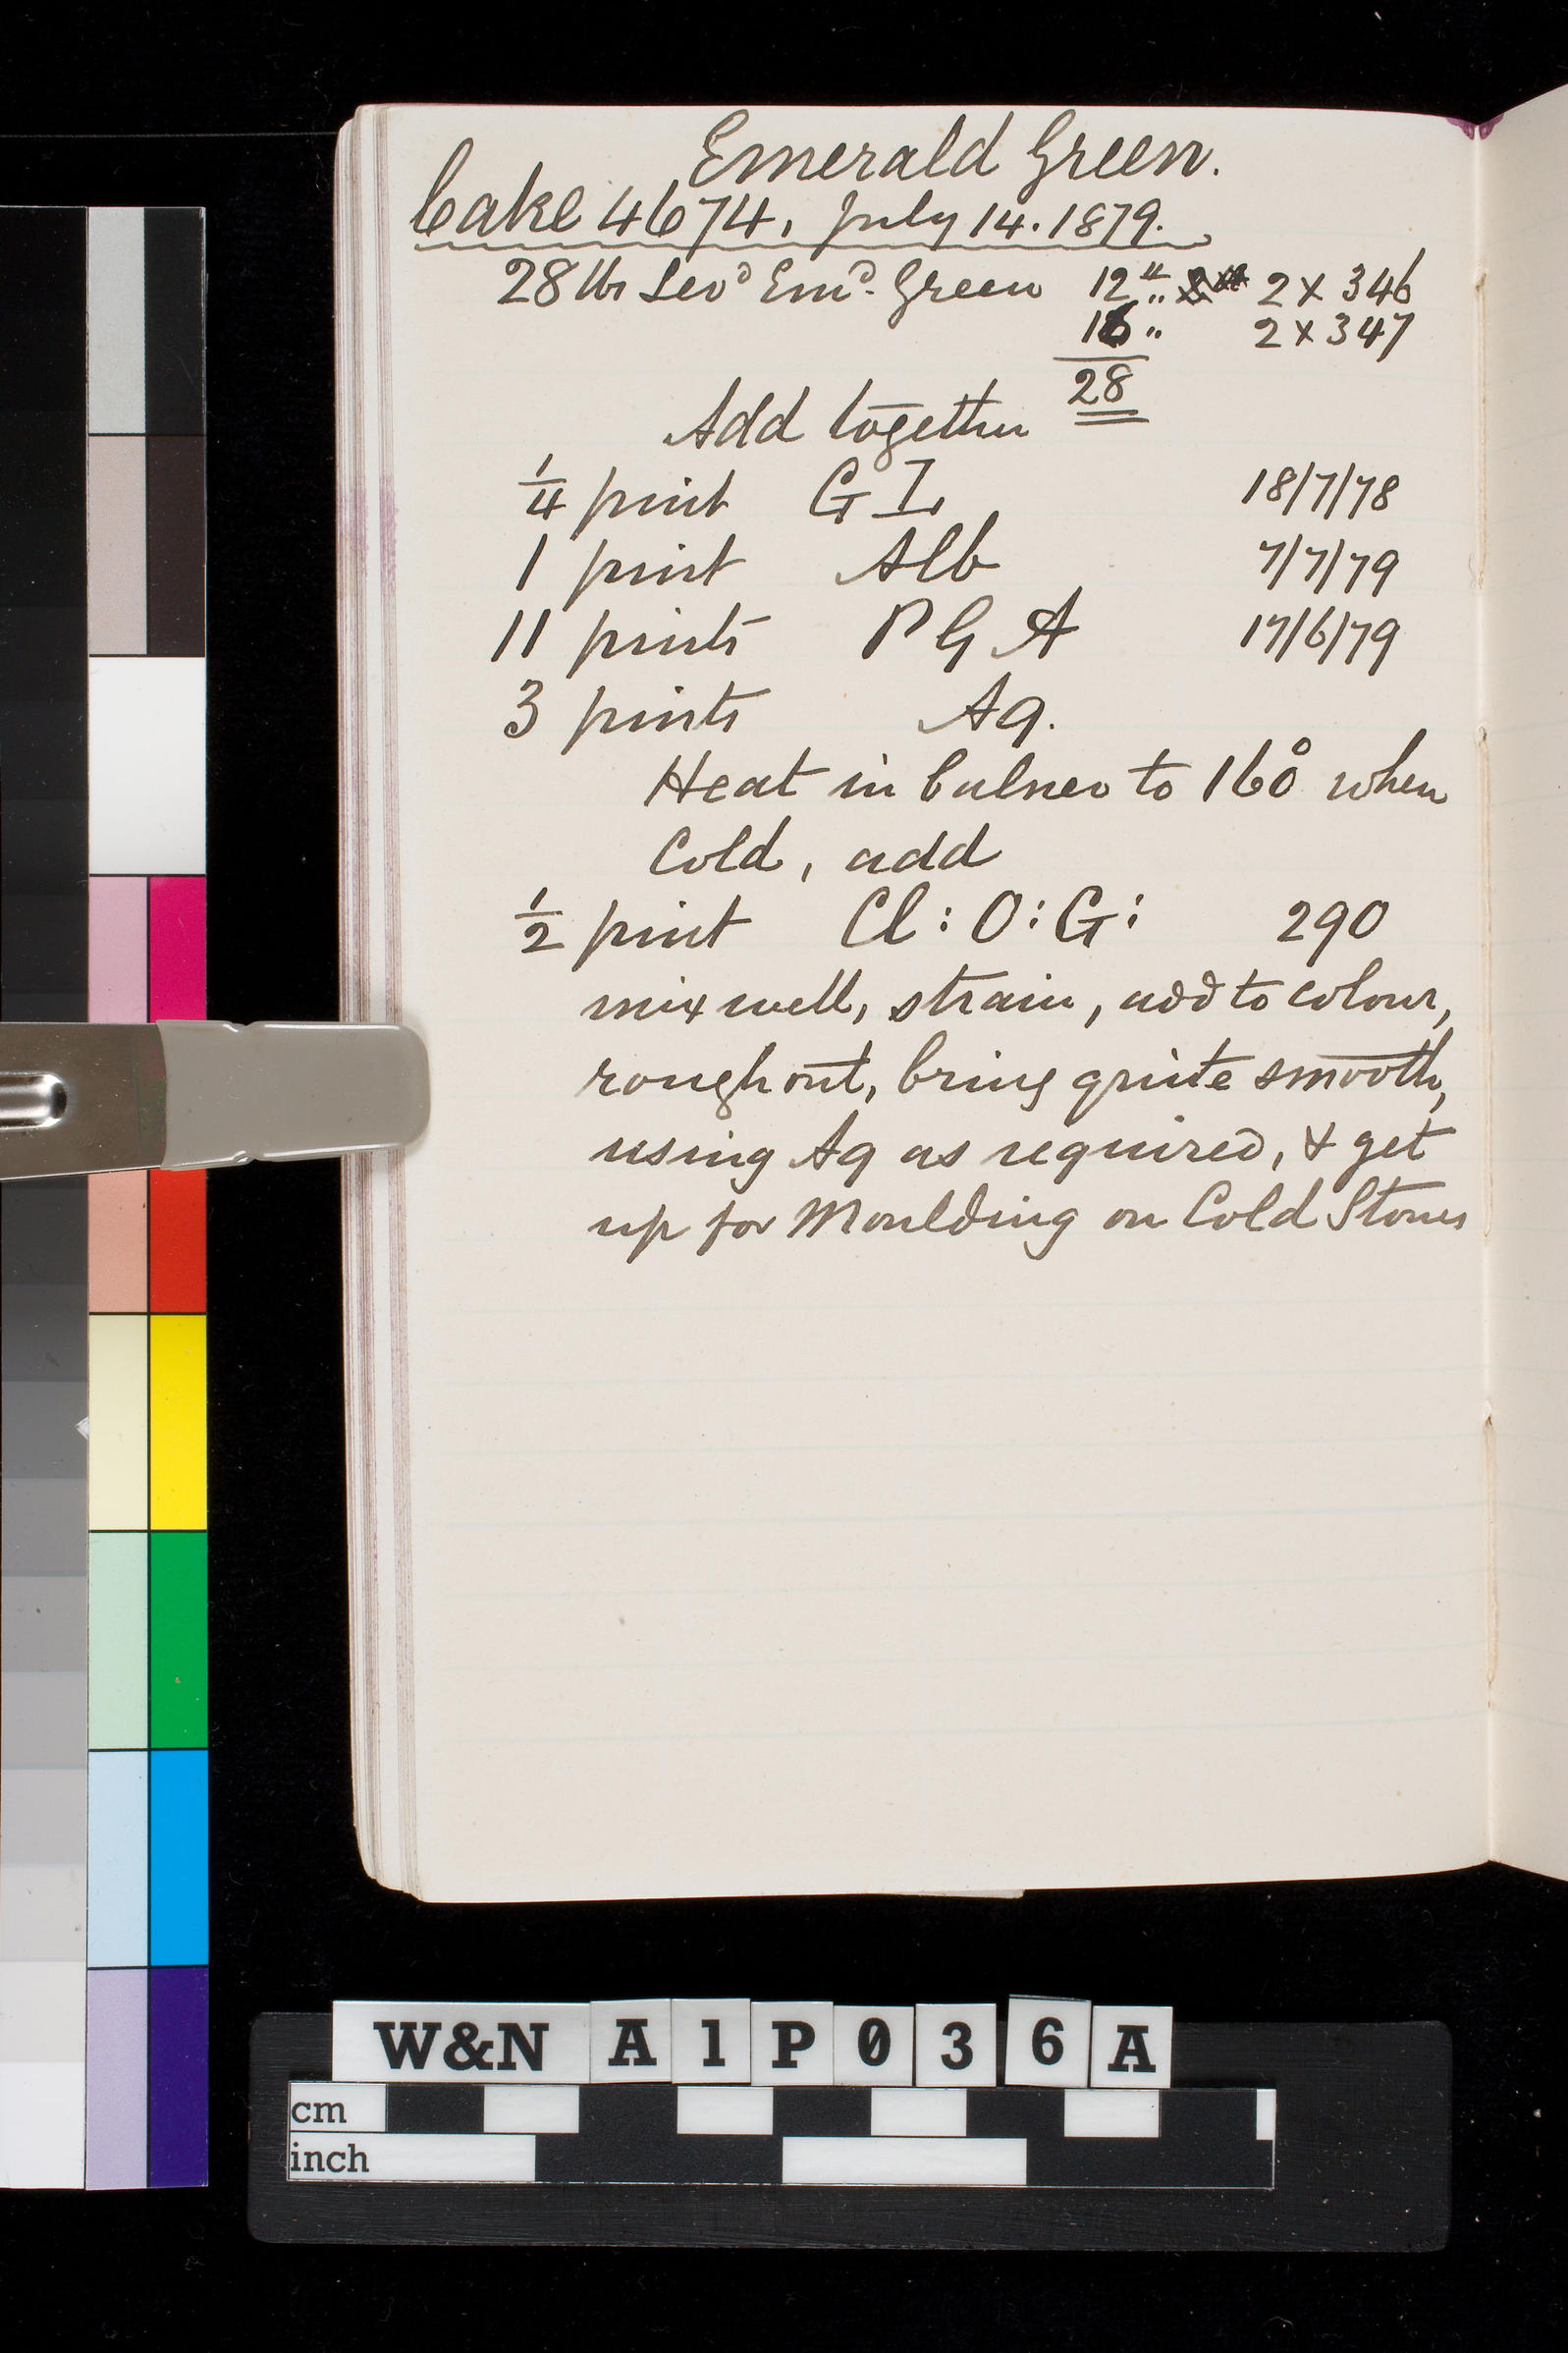 Emerald Green.
Cake 4674, July 14. 1879.
28 lbs Lev^d Em^d. Green 12 " .. 2 x 346
16 .. 2 x 347
28
Add together
1/4 pint G I, 18/7/78
1 pint Alb 7/7/79
11 pints P G A 17/6/79
3 pints Aq.
Heat in balneo to 160° when
Cold, add
1/2 pint Cl : O : G : 290
mix well, strain, add to colour,
rough out, bring quite smooth,
using Aq as required, & get
up for Moulding on Cold Stones
W&N A1P036A
cm
inch